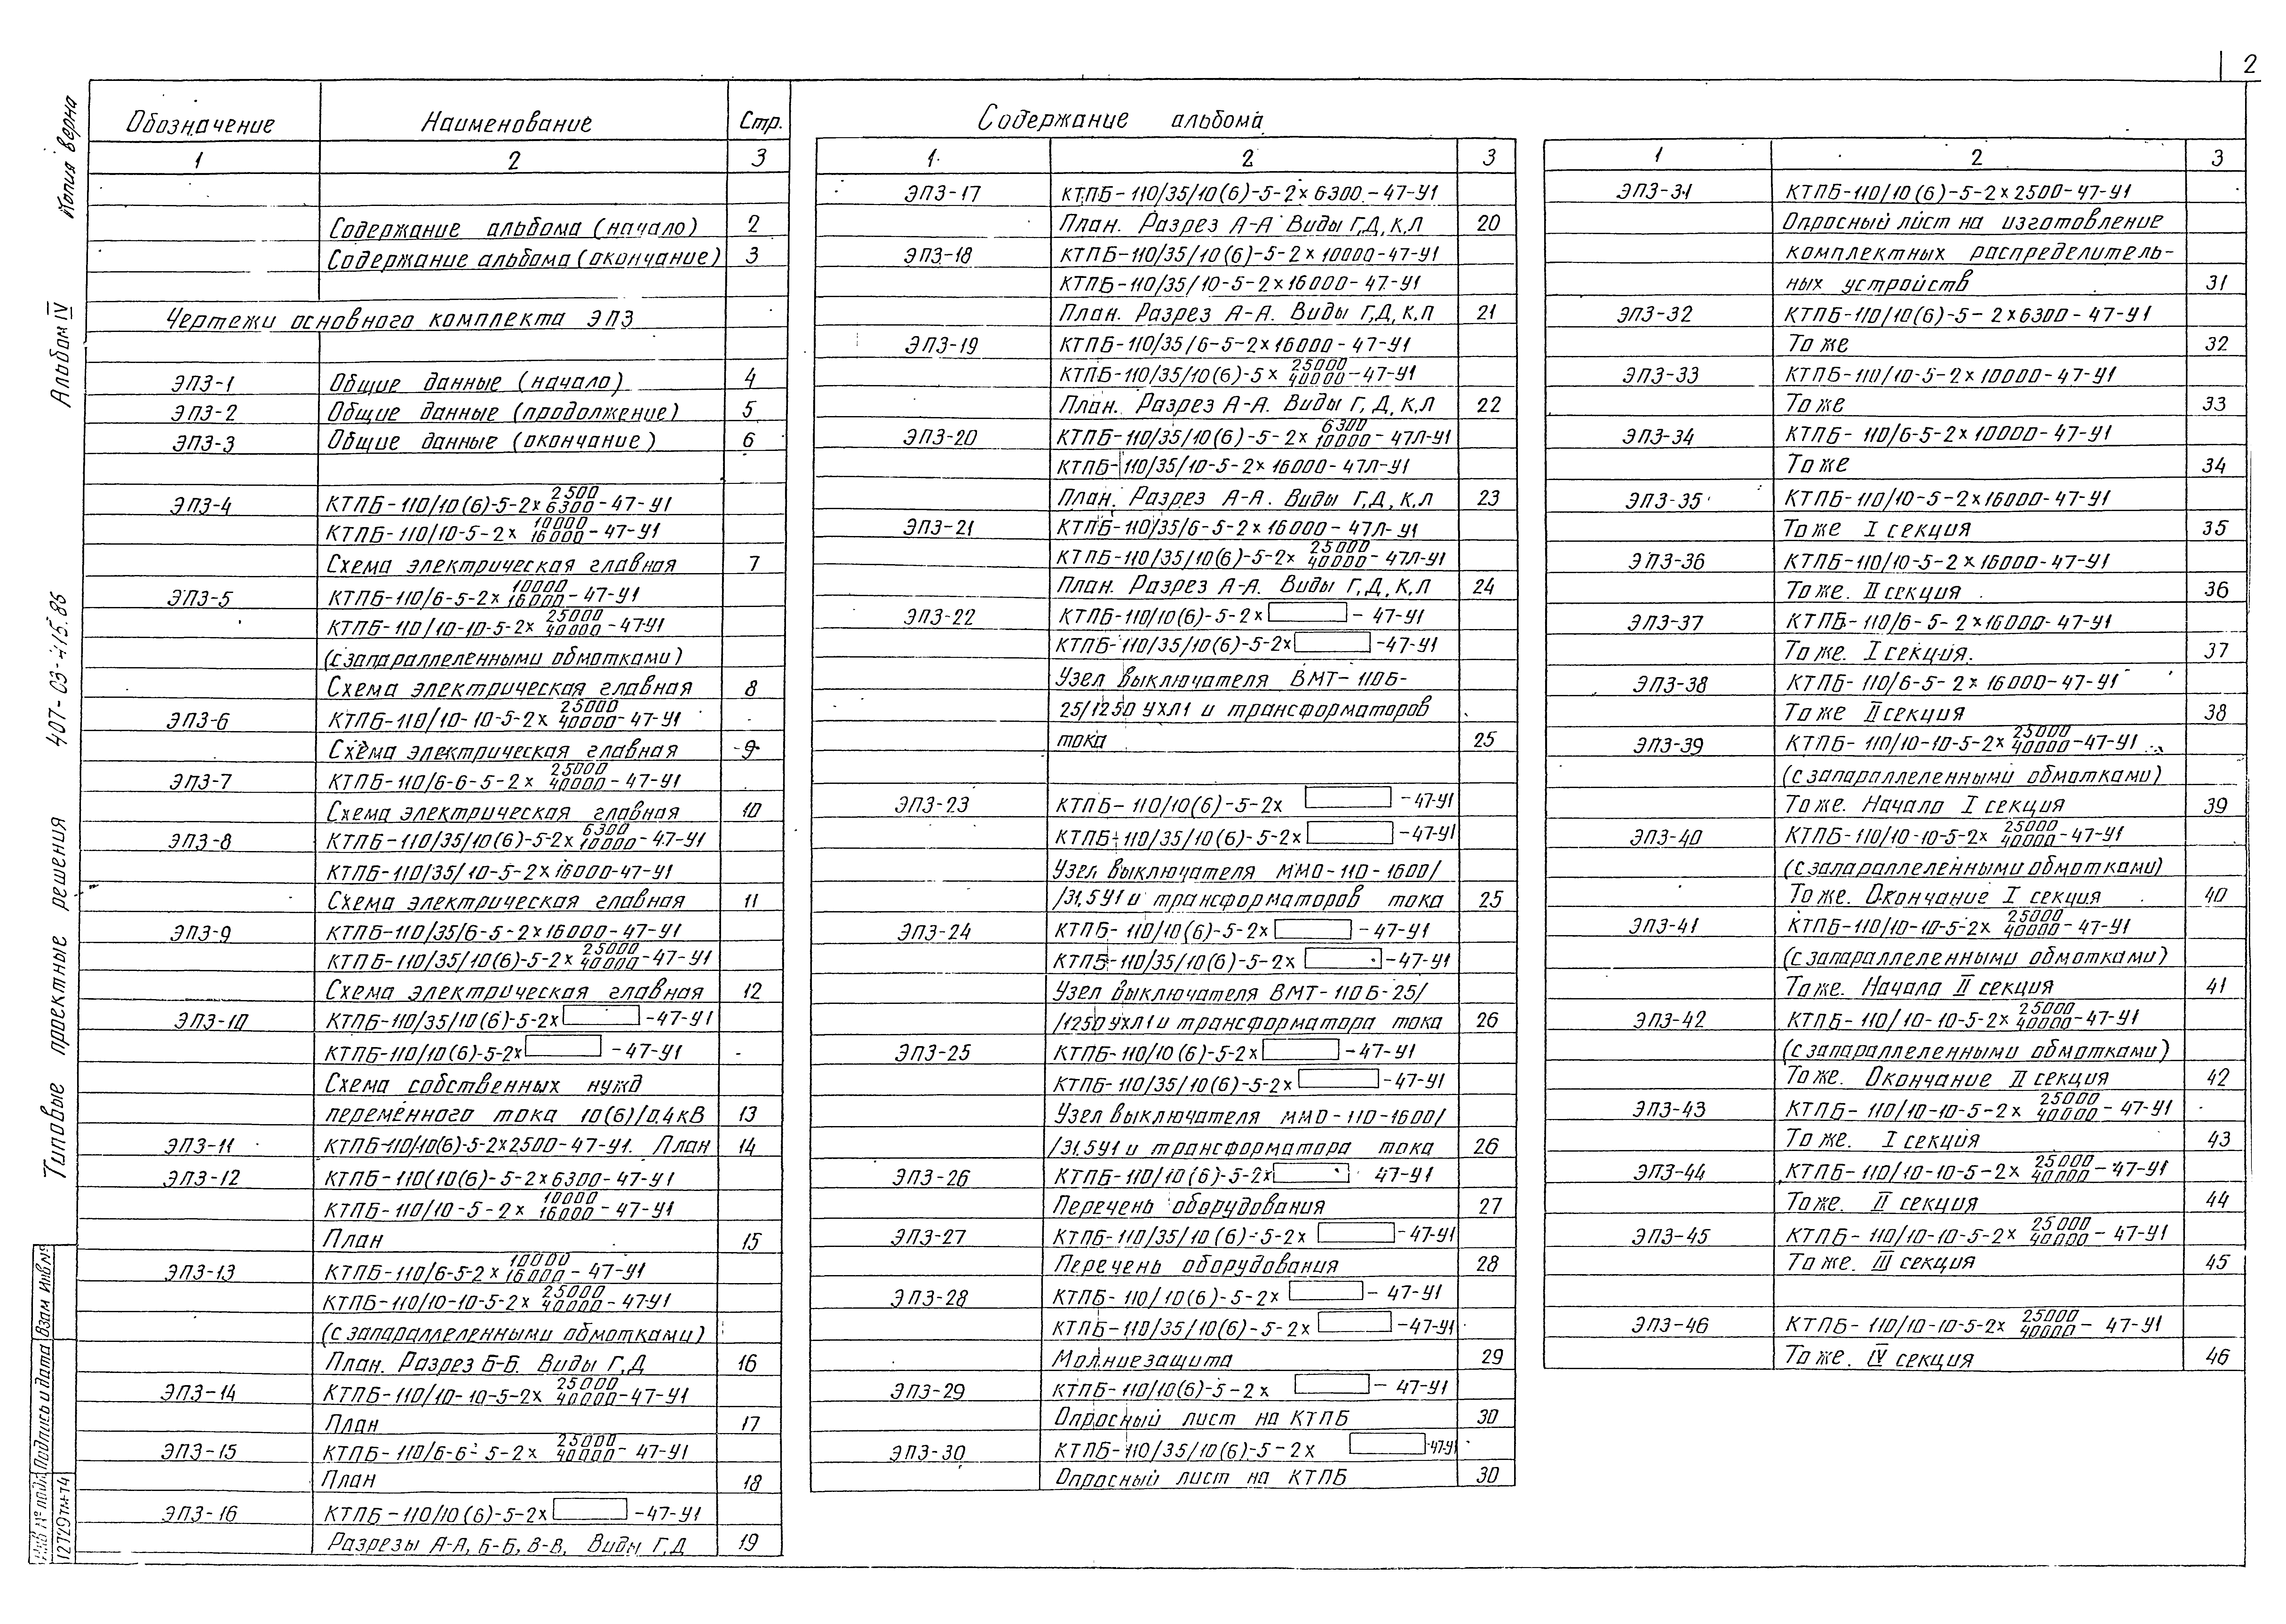 2
Содержание альбома
Копия верна
Альбом IV
407-03-415.86
Типовые проектные решения
Взам инв №
Подпись и дата
Инв № подл
12729тм-т4
Обозначение Наименование Стр.
1 2 3
Содержание альбома (начало) 2
Содержание альбома (окончание) 3
Чертежи основного комплекта ЭП3
ЭП3-1 Общие данные (начало) 4
ЭП3-2 Общие данные (продолжение) 5
ЭП3-3 Общие данные (окончание) 6
ЭП3-4 КТПБ-110/10(6)-5-2х 2500/6300 -47-У1
КТПБ-110/10-5-2х 10000/16000 -47-У1
Схема электрическая главная 7
ЭП3-5 КТПБ-110/6-5-2х 10000/16000 -47-У1
КТПБ-110/10-10-5-2х 25000/40000 -47-У1
(с запараллеленными обмотками)
Схема электрическая главная 8
ЭП3-6 КТПБ-110/10-10-5-2х 25000/40000 -47-У1
Схема электрическая главная 9
ЭП3-7 КТПБ-110/6-6-5-2х 25000/40000 -47-У1
Схема электрическая главная 10
ЭП3-8 КТПБ-110/35/10(6)-5-2х 6300/10000 -47-У1
КТПБ-110/35/10-5-2х16000-47-У1
Схема электрическая главная 11
ЭП3-9 КТПБ-110/35/6-5-2х16000-47-У1
КТПБ-110/35/10(6)-5-2х 25000/40000 -47-У1
Схема электрическая главная 12
ЭП3-10 КТПБ-110/35/10(6)-5-2х -47-У1
КТПБ-110/10(6)-5-2х -47-У1
Схема собственных нужд
переменного тока 10(6)/0.4кВ 13
ЭП3-11 КТПБ-110/10(6)-5-2х2500-47-У1. План 14
ЭП3-12 КТПБ-110(10(6)-5-2х6300-47-У1
КТПБ-110/10-5-2х 10000/16000 -47-У1
План 15
ЭП3-13 КТПБ-110/6-5-2х 10000/16000 -47-У1
КТПБ-110/10-10-5-2х 25000/40000 -47-У1
(с запараллеленными обмотками)
План. Разрез Б-Б. Виды Г,Д 16
ЭП3-14 КТПБ-110/10-10-5-2х 25000/40000 -47-У1
План 17
ЭП3-15 КТПБ-110/6-6-5-2х 25000/40000 -47-У1
План 18
ЭП3-16 КТПБ-110/10(6)-5-2х -47-У1
Разрезы А-А, Б-Б, В-В, Виды Г,Д 19
1 2 3
ЭП3-17 КТПБ-110/35/10(6)-5-2х6300-47-У1
План. Разрез А-А Виды Г,Д,К,Л 20
ЭП3-18 КТПБ-110/35/10(6)-5-2х10000-47-У1
КТПБ-110/35/10-5-2х16000-47-У1
План. Разрез А-А. Виды Г,Д,К,Л 21
ЭП3-19 КТПБ-110/35/6-5-2х16000-47-У1
КТПБ-110/35/10(6)-5х 25000/40000 -47-У1
План. Разрез А-А. Виды Г,Д,К,Л 22
ЭП3-20 КТПБ-110/35/10(6)-5-2х 6300/10000 -47Л-У1
КТПБ-110/35/10-5-2х16000-47Л-У1
План. Разрез А-А. Виды Г,Д,К,Л 23
ЭП3-21 КТПБ-110/35/6-5-2х16000-47Л-У1
КТПБ-110/35/10(6)-5-2х 25000/40000 -47Л-У1
План. Разрез А-А. Виды Г,Д,К,Л 24
ЭП3-22 КТПБ-110/10(6)-5-2х -47-У1
КТПБ-110/35/10(6)-5-2х -47-У1
Узел выключателя ВМТ-110Б-
25/1250 УХЛ1 и трансформаторов
тока 25
ЭП3-23 КТПБ-110/10(6)-5-2х -47-У1
КТПБ-110/35/10(6)-5-2х -47-У1
Узел выключателя ММО-110-1600/
/31,5У1 и трансформаторов тока 25
ЭП3-24 КТПБ-110/10(6)-5-2х -47-У1
КТПБ-110/35/10(6)-5-2х -47-У1
Узел выключателя ВМТ-110Б-25/
/1250 УХЛ1 и трансформатора тока 26
ЭП3-25 КТПБ-110/10(6)-5-2х -47-У1
КТПБ-110/35/10(6)-5-2х -47-У1
Узел выключателя ММО-110-1600/
/31.5У1 и трансформатора тока 26
ЭП3-26 КТПБ-110/10(6)-5-2х 47-У1
Перечень оборудования 27
ЭП3-27 КТПБ-110/35/10(6)-5-2х -47-У1
Перечень оборудования 28
ЭП3-28 КТПБ-110/10(6)-5-2х -47-У1
КТПБ-110/35/10(6)-5-2х -47-У1
Молниезащита 29
ЭП3-29 КТПБ-110/10(6)-5-2х -47-У1
Опросный лист на КТПБ 30
ЭП3-30 КТПБ-110/35/10(6)-5-2х -47-У1
Опросный лист на КТПБ 30
1 2 3
ЭП3-31 КТПБ-110/10(6)-5-2х2500-47-У1
Опросный лист на изготовление
комплектных распределитель-
ных устройств 31
ЭП3-32 КТПБ-110/10(6)-5-2х6300-47-У1
То же 32
ЭП3-33 КТПБ-110/10-5-2х10000-47-У1
То же 33
ЭП3-34 КТПБ-110/6-5-2х10000-47-У1
То же 34
ЭП3-35 КТПБ-110/10-5-2х16000-47-У1
То же I секция 35
ЭП3-36 КТПБ-110/10-5-2х16000-47-У1
То же. II секция 36
ЭП3-37 КТПБ-110/6-5-2х16000-47-У1
То же. I секция. 37
ЭП3-38 КТПБ-110/6-5-2х16000-47-У1
То же II секция 38
ЭП3-39 КТПБ-110/10-10-5-2х 25000/40000 -47-У1
(с запараллеленными обмотками)
То же. Начало I секция 39
ЭП3-40 КТПБ-110/10-10-5-2х 25000/40000 -47-У1
(с запараллеленными обмотками)
То же. Окончание I секция 40
ЭП3-41 КТПБ-110/10-10-5-2х 25000/40000 -47-У1
(с запараллеленными обмотками)
То же. Начало II секция 41
ЭП3-42 КТПБ-110/10-10-5-2х 25000/40000 -47-У1
(с запараллеленными обмотками)
То же. Окончание II секция 42
ЭП3-43 КТПБ-110/10-10-5-2х 25000/40000 -47-У1
То же. I секция 43
ЭП3-44 КТПБ-110/10-10-5-2х 25000/40000 -47-У1
То же. II секция 44
ЭП3-45 КТПБ-110/10-10-5-2х 25000/40000 -47-У1
То же. III секция 45
ЭП3-46 КТПБ-110/10-10-5-2х 25000/40000 -47-У1
То же. IV секция 46